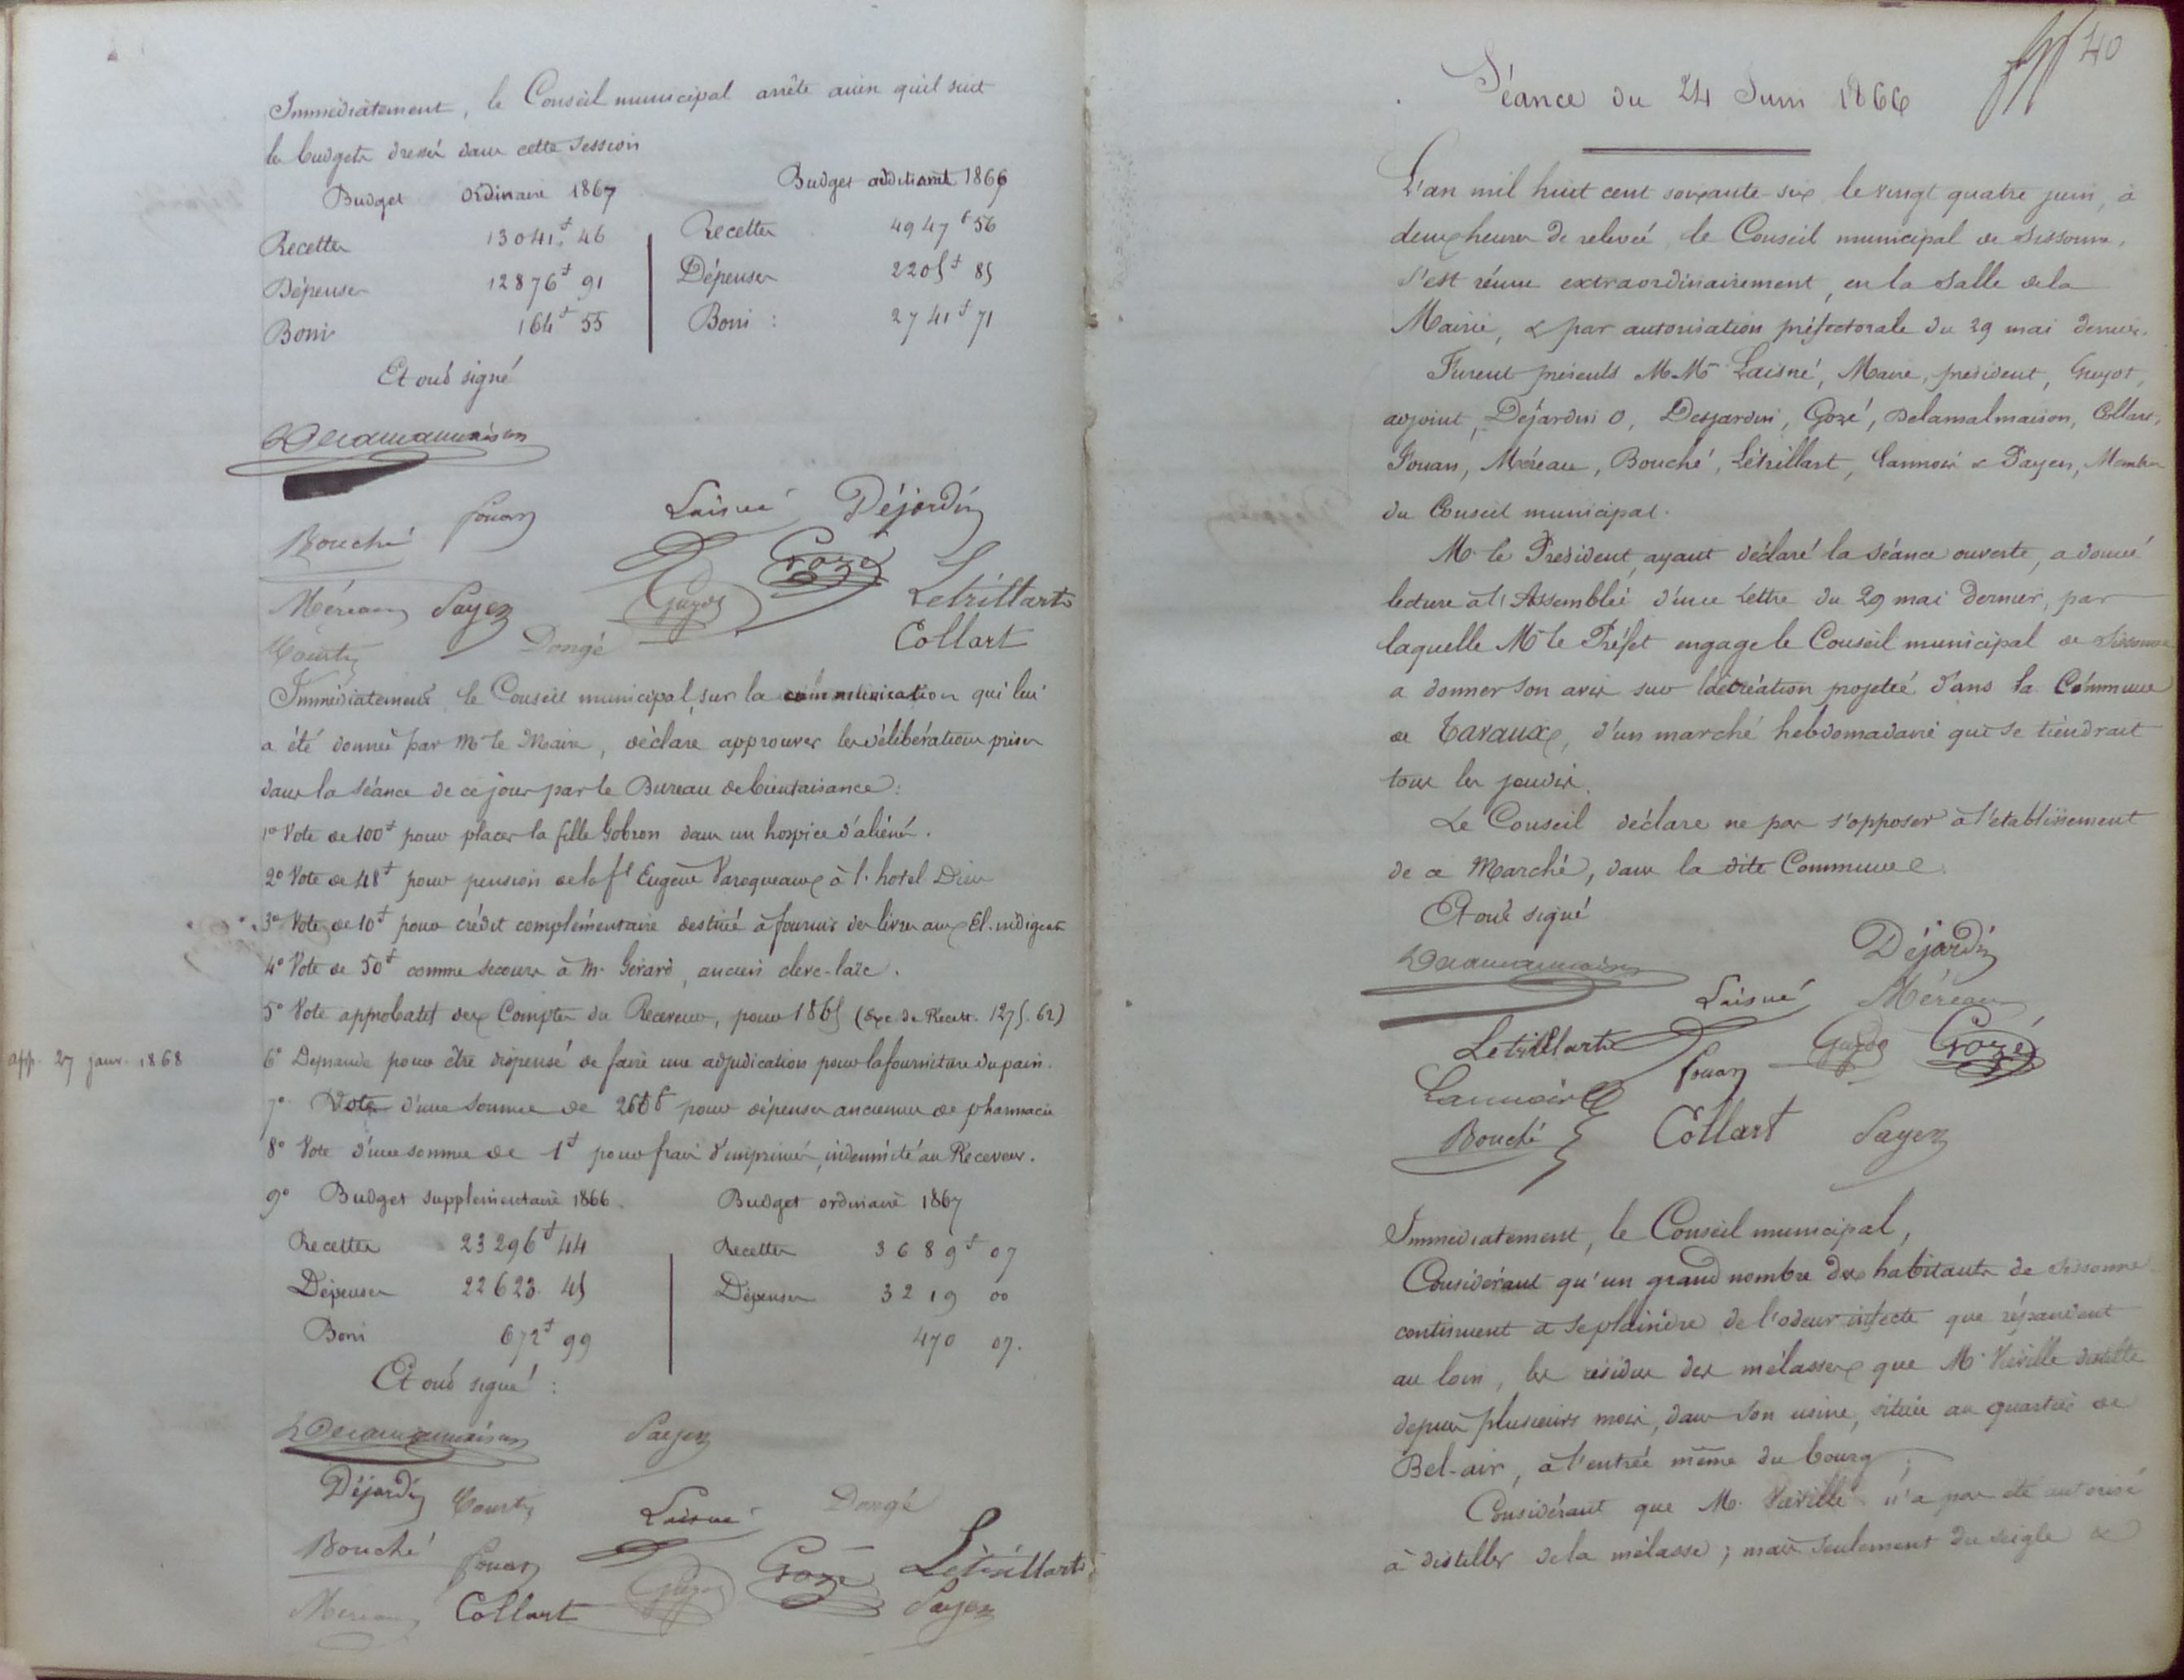 Immédiatement, le Conseil municipal arrête ainsi qu'il suit
les budgets dressés dans cette session
Budget ordinaire 1867
Recettes 13041f 46
Dépenses 12876f 91
Boni 164f 55
Budget additionnel 1866
Recettes 4947f 56
Dépenses 2205f 85
Boni : 2741f 71
Et ont signé
Delamalmaison
Laisné Déjardin
Bouché Fouan
Gozé
Méreau Payen Guyot Letrillart
Courtin Dongé Collart
Immédiatement le Conseil municipal, sur la communication qui lui
a été donnée par Mr le Maire, déclare approuver les délibérations prises
dans la séance de ce jour par le Bureau de bienfaisance :
1o Vote de 100f pour placer la fille Gobron dans un hospice d'aliénés.
2o Vote de 48f pour pension de la fe Eugène Varoqueaux à l'hotel Dieu
3o Vote de 10f pour crédit complémentaire destiné à fournir des livres aux El. indigents
4o Vote de 50f comme secours à Mr Gérard, ancien clerc-laïc.
5o Vote approbatif des Comptes du Receveur, pour 1865 (Exc. de Recett. 1275.62)
app. 27 janv. 1868
6o Demande pour être dispensé de faire une adjudication pour la fourniture du pain.
7o Vote d'une somme de pour dépenses anciennes de pharmacie
8o Vote d'une somme de 1f pour frais d'imprimés, indemnité au Receveur.
9o Budget supplémentaire 1866. Budget ordinaire 1867
Recettes 23296f 44 Recettes 3689f 07
Dépenses 22623. 45 Dépenses 3219 00
Boni 672f 99 470 07.
Et ont signé :
Delamalmaison Payen
Déjardin Courtin Laisné Dongé
Bouché Fouan Gozé Letrillart
Méreau Collart Guyot Payen
40
Séance du 24 Juin 1866
L'an mil huit cent soixante-six, le vingt quatre juin, à
deux heures de relevée, le Conseil municipal de Sissonne,
s'est réuni extraordinairement, en la salle de la
Mairie, & par autorisation préfectorale du 29 mai dernier.
Furent présents MMrs Laisné, Maire, président, Guyot,
adjoint, Déjardin O, Desjardin, Gozé, Delamalmaison, Collart,
Fouan, Méreau, Bouché, Létrillart, Lannois & Payen, Membres
du Conseil municipal.
Mr le Président, ayant déclaré la séance ouverte, a donné
lecture à l'Assemblée d'une lettre du 29 mai dernier, par
laquelle Mr le Préfet engage le Conseil municipal de Sissonne
a donner son avis sur la création projetée dans la Commune
de Tavaux, d'un marché hebdomadaire qui se tiendrait
tous les jeudis.
Le Conseil déclare ne pas s'opposer à l'établissement
de ce Marché, dans la dite Commune.
Et ont signé
Delamalmaison Déjardin
Laisné Méreau
Letrillart Fouan Guyot Gozé
Lannois
Bouché Collart Payen
Immédiatement, le Conseil municipal,
Considérant qu'un grand nombre des habitants de Sissonne
continuent à se plaindre de l'odeur infecte que répandent
au loin, les résidus des mélasses que Mr Viéville distille
depuis plusieurs mois, dans son usine, située au quartier de
Bel-air, à l'entrée même du bourg ;
Considérant que Mr Viéville n'a pas été autorisé
à distiller de la mélasse ; mais seulement du seigle &